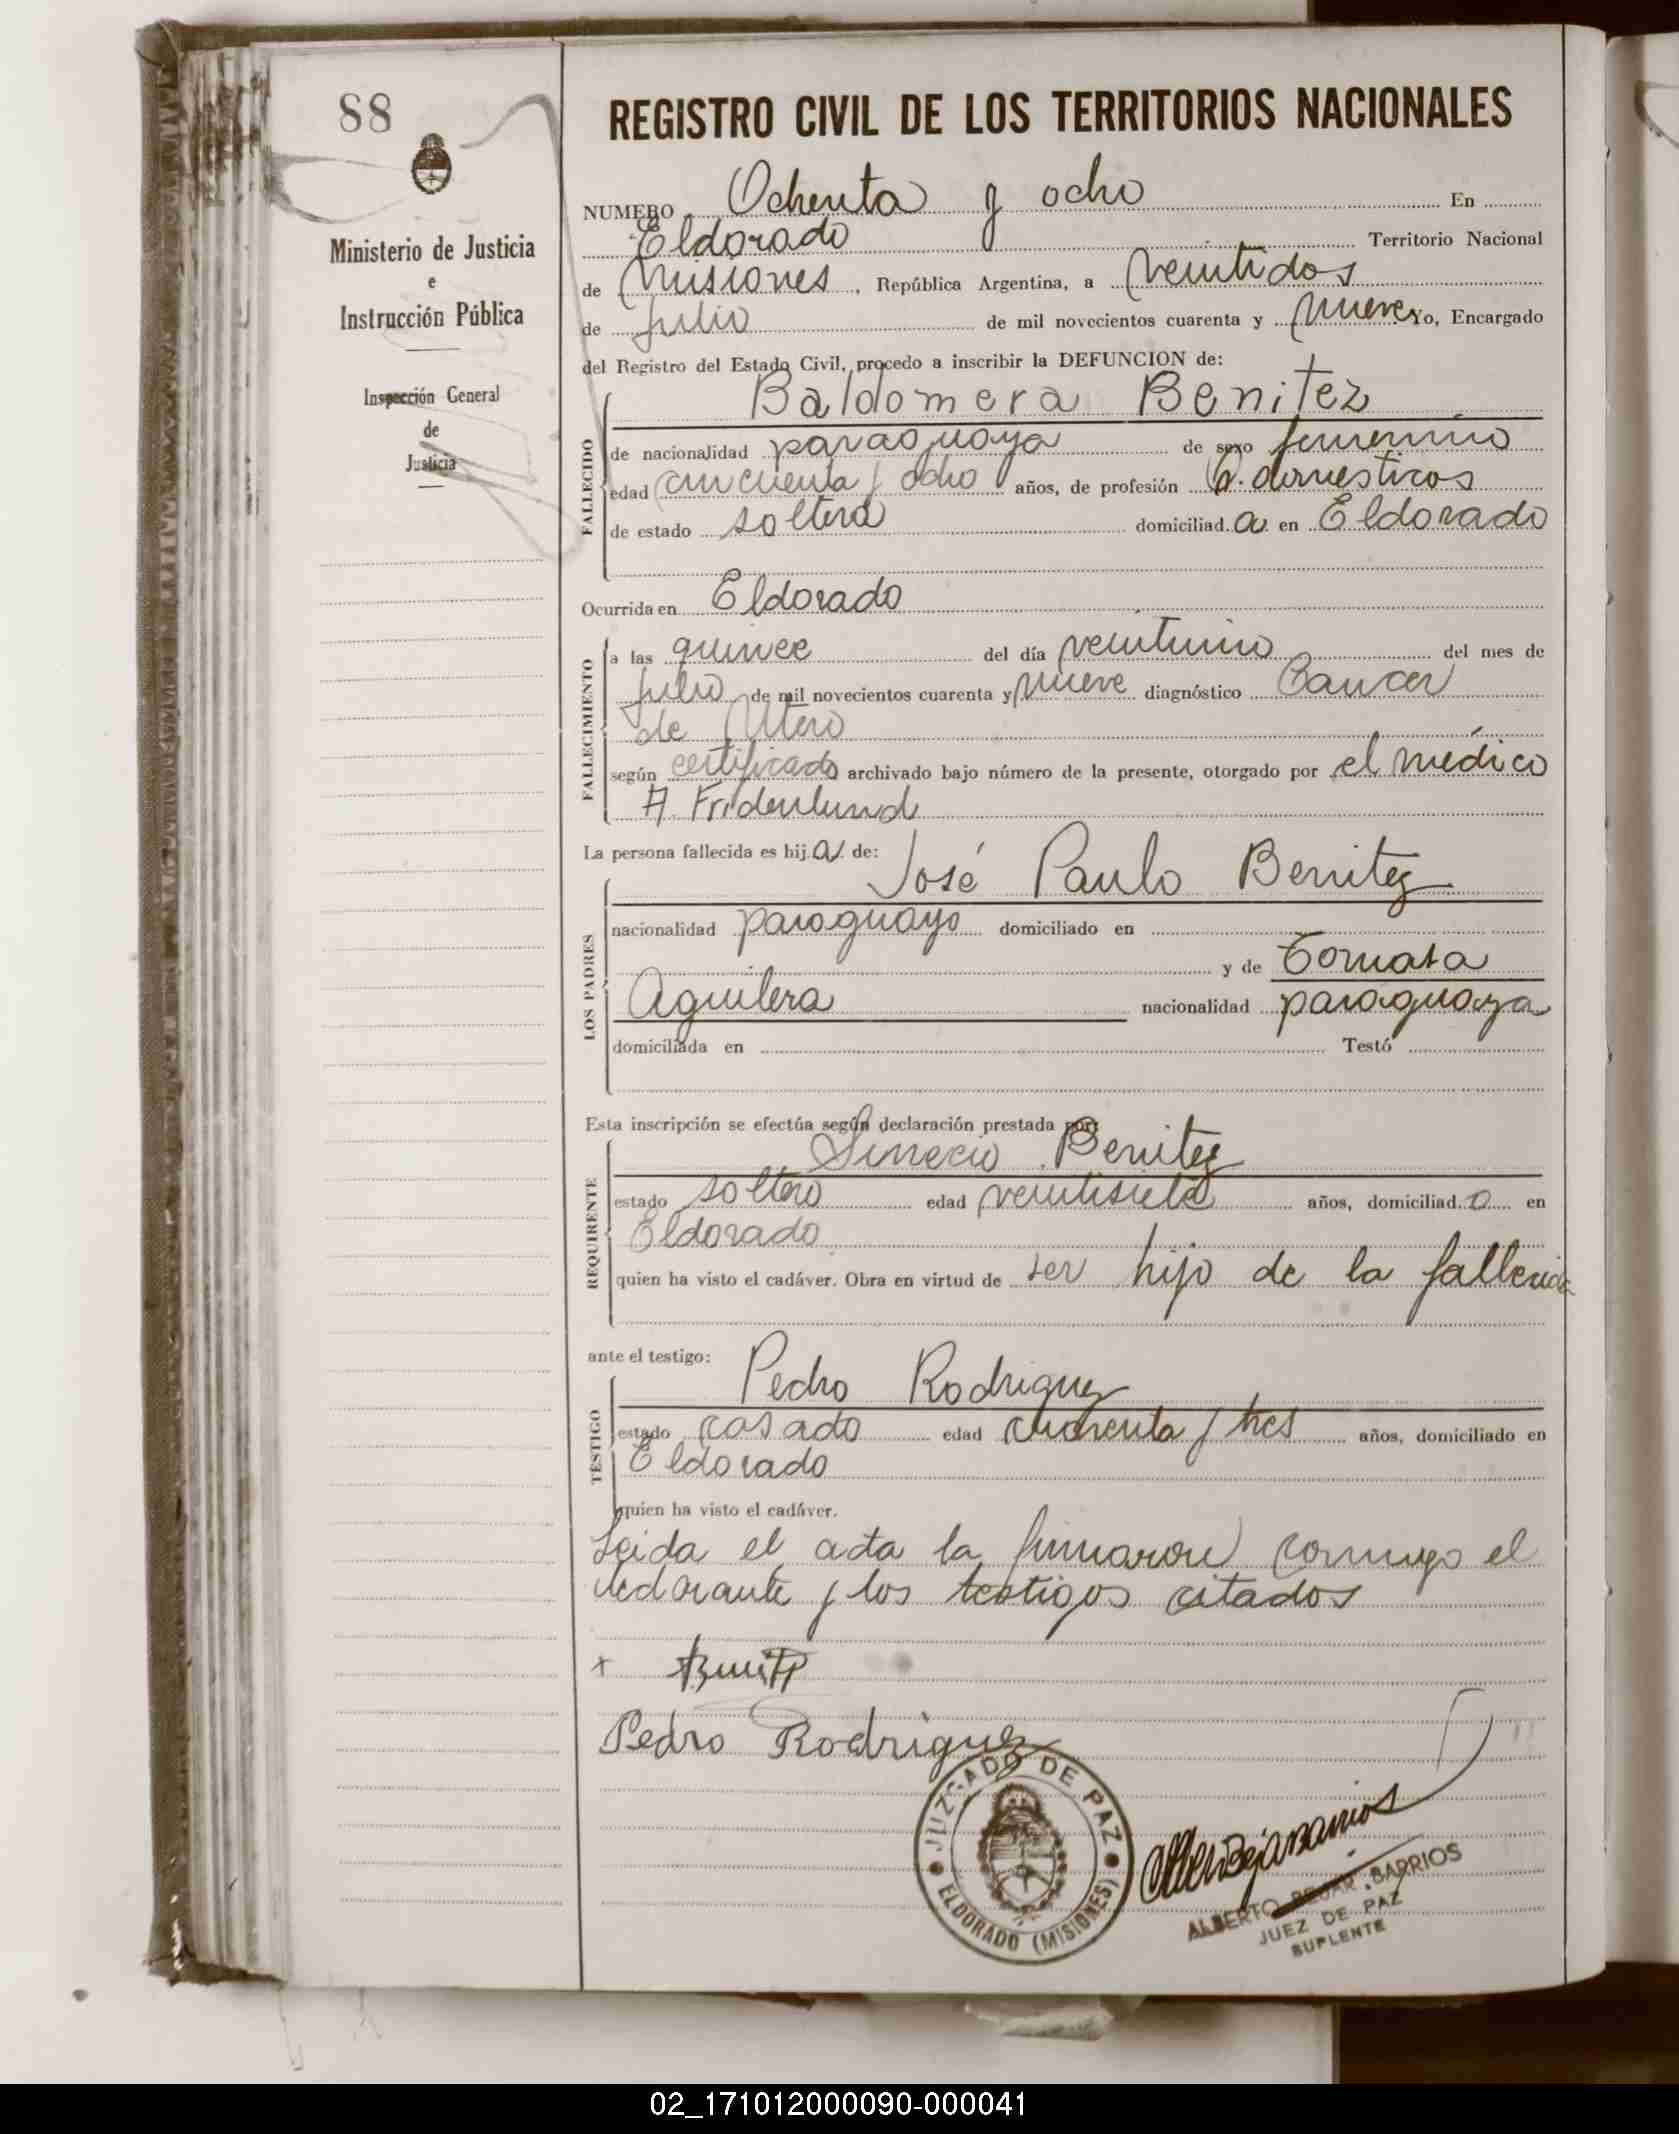 88
REGISTRO CIVIL DE LOS TERRITORIOS NACIONALES
Ministerio de Justicia
e
Instrucción Pública
Inspección General
de
Justicia
NUMERO Ochenta y ocho En
Eldorado Territorio Nacional
de Misiones, República Argentina, a veintidos
de Julio de mil novecientos cuarenta y nueve Yo, Encargado
del Registro del Estado Civil, procedo a inscribir la DEFUNCION de:
Baldomera Benitez
FALLECIDO
de nacionalidad paraguaya de sexo femenino
edad cincuenta y ocho años, de profesión Q. domesticos
de estado soltera domiciliad a en Eldorado
Ocurrida en Eldorado
FALLECIMIENTO
a las quince del día veintiuno del mes de
Julio de mil novecientos cuarenta y nueve diagnóstico Cancer
de Utero
según certificado archivado bajo número de la presente, otorgado por el médico
A. Fridenlund
La persona fallecida es hij a de:
José Paulo Benitez
LOS PADRES
nacionalidad paraguayo domiciliado en
y de Tomasa
Aguilera nacionalidad paraguaya
domiciliada en Testó
Esta inscripción se efectúa según declaración prestada por:
Sinecio Benitez
REQUIRENTE
estado soltero edad veintisiete años, domiciliad o en
Eldorado
quien ha visto el cadáver. Obra en virtud de ser hijo de la fallecida
ante el testigo:
Pedro Rodriguez
TESTIGO
estado casado edad cuarenta y tres años, domiciliado en
Eldorado
quien ha visto el cadáver.
Leida el acta la firmaron conmigo el
declarante y los testigos citados
+
Pedro Rodriguez
JUZGADO DE PAZ
ELDORADO (MISIONES)
ALBERTO BEJAR BARRIOS
JUEZ DE PAZ
SUPLENTE
02_171012000090-000041